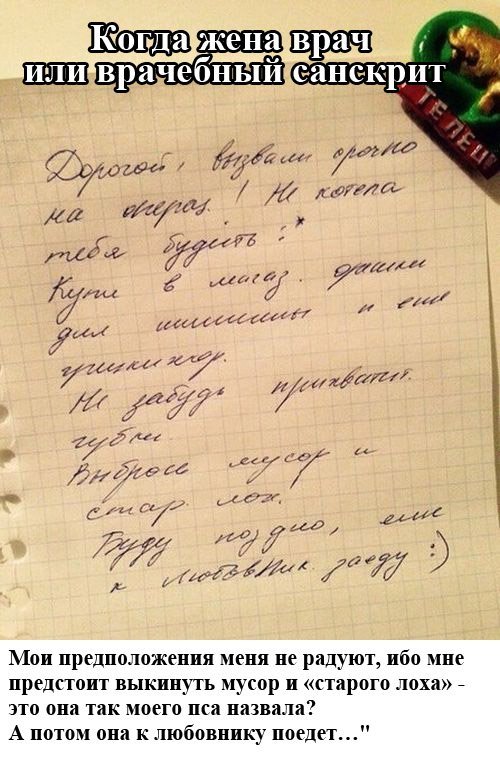 Когда жена врач
или врачебный санскрит
ТЕЛЕЦ
Дорогой, вызвали срочно
на операц. ! Не хотела
тебя будить :*
Купи в магаз.
для и еще
Не забудь прихватит.
губки.
Выброси мусор и
стар. лох.!
Буду поздно, еще
к любовник. заеду :)
Мои предположения меня не радуют, ибо мне
предстоит выкинуть мусор и «старого лоха» -
это она так моего пса назвала?
А потом она к любовнику поедет…"